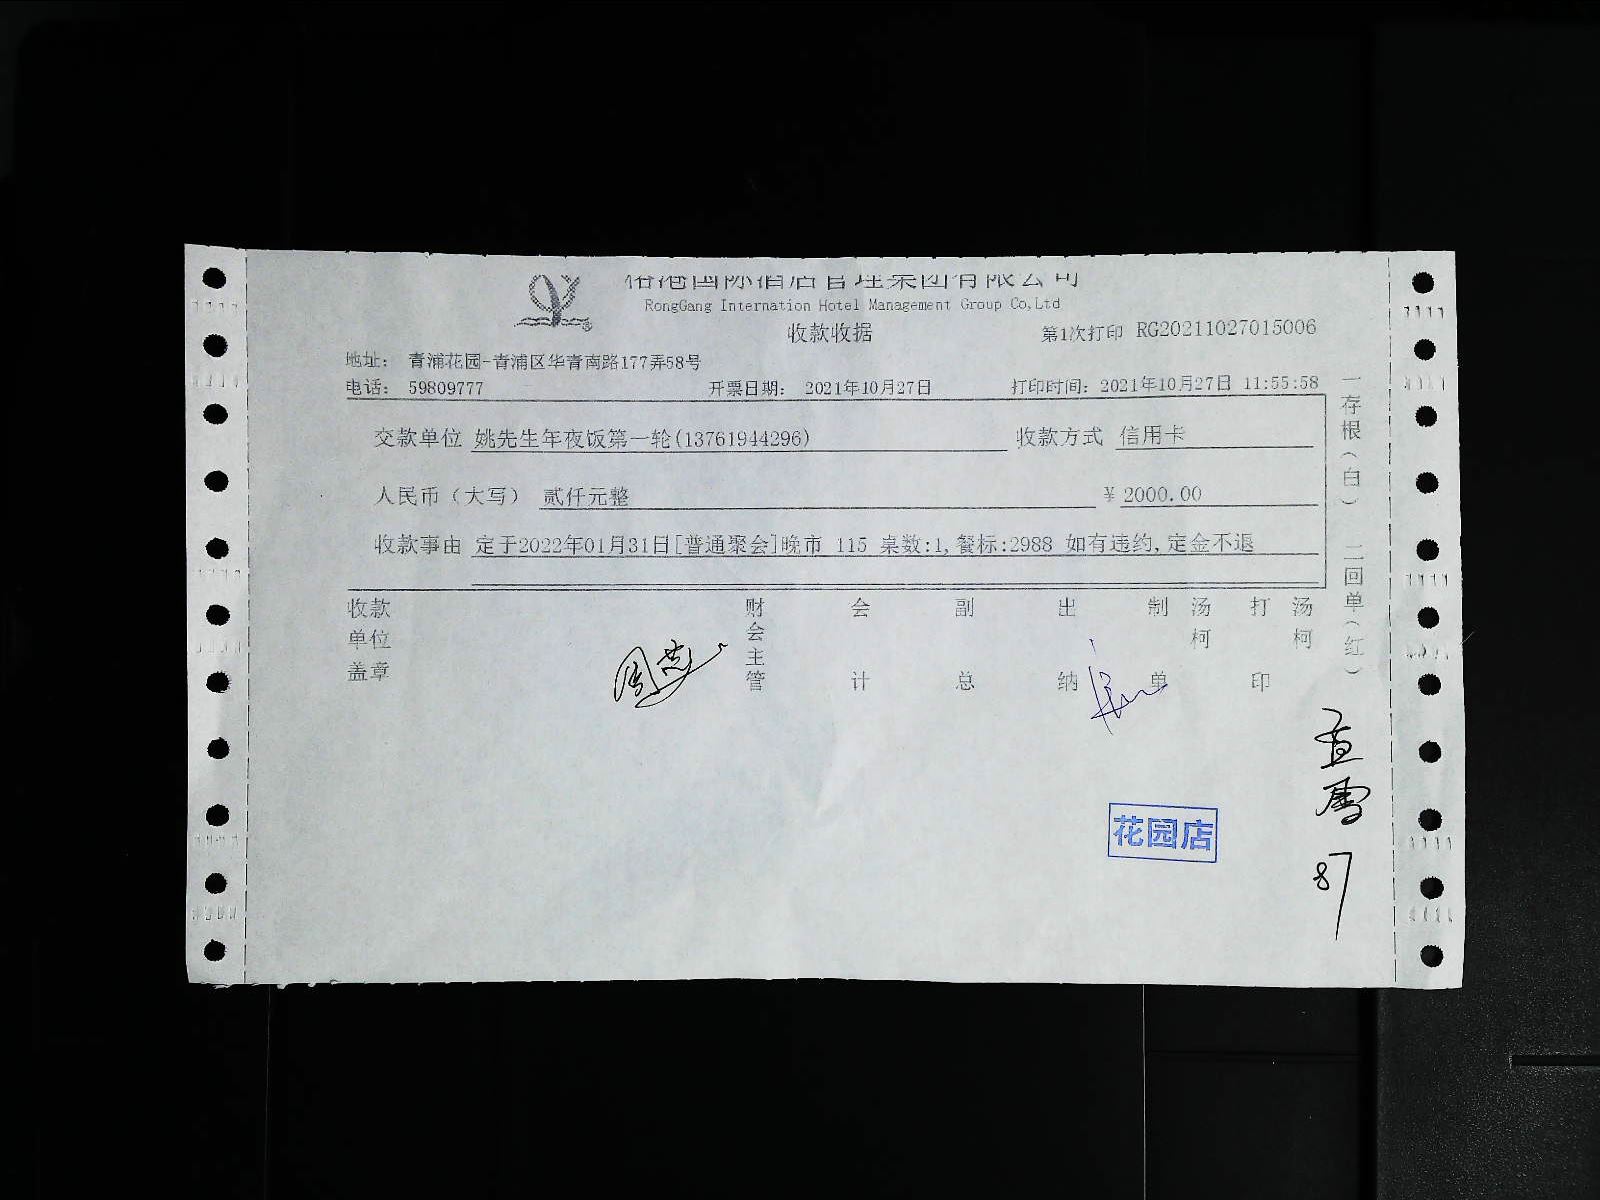 榕港国际酒店管理集团有限公司
RongGang Internation Hotel Management Group Co,Ltd
收款收据
第1次打印 RG20211027015006
地址： 青浦花园-青浦区华青南路177弄58号
电话： 59809777 开票日期： 2021年10月27日 打印时间：2021年10月27日 11:55:58
交款单位 姚先生年夜饭第一轮(13761944296) 收款方式 信用卡
人民币（大写） 贰仟元整 ￥2000.00
收款事由 定于2022年01月31日[普通聚会]晚市 115 桌数:1,餐标:2988 如有违约,定金不退
一存根（白） 二回单（红）
收款单位盖章 财会主管 会计 副总 出纳 制单 汤柯 打印 汤柯
花园店
87